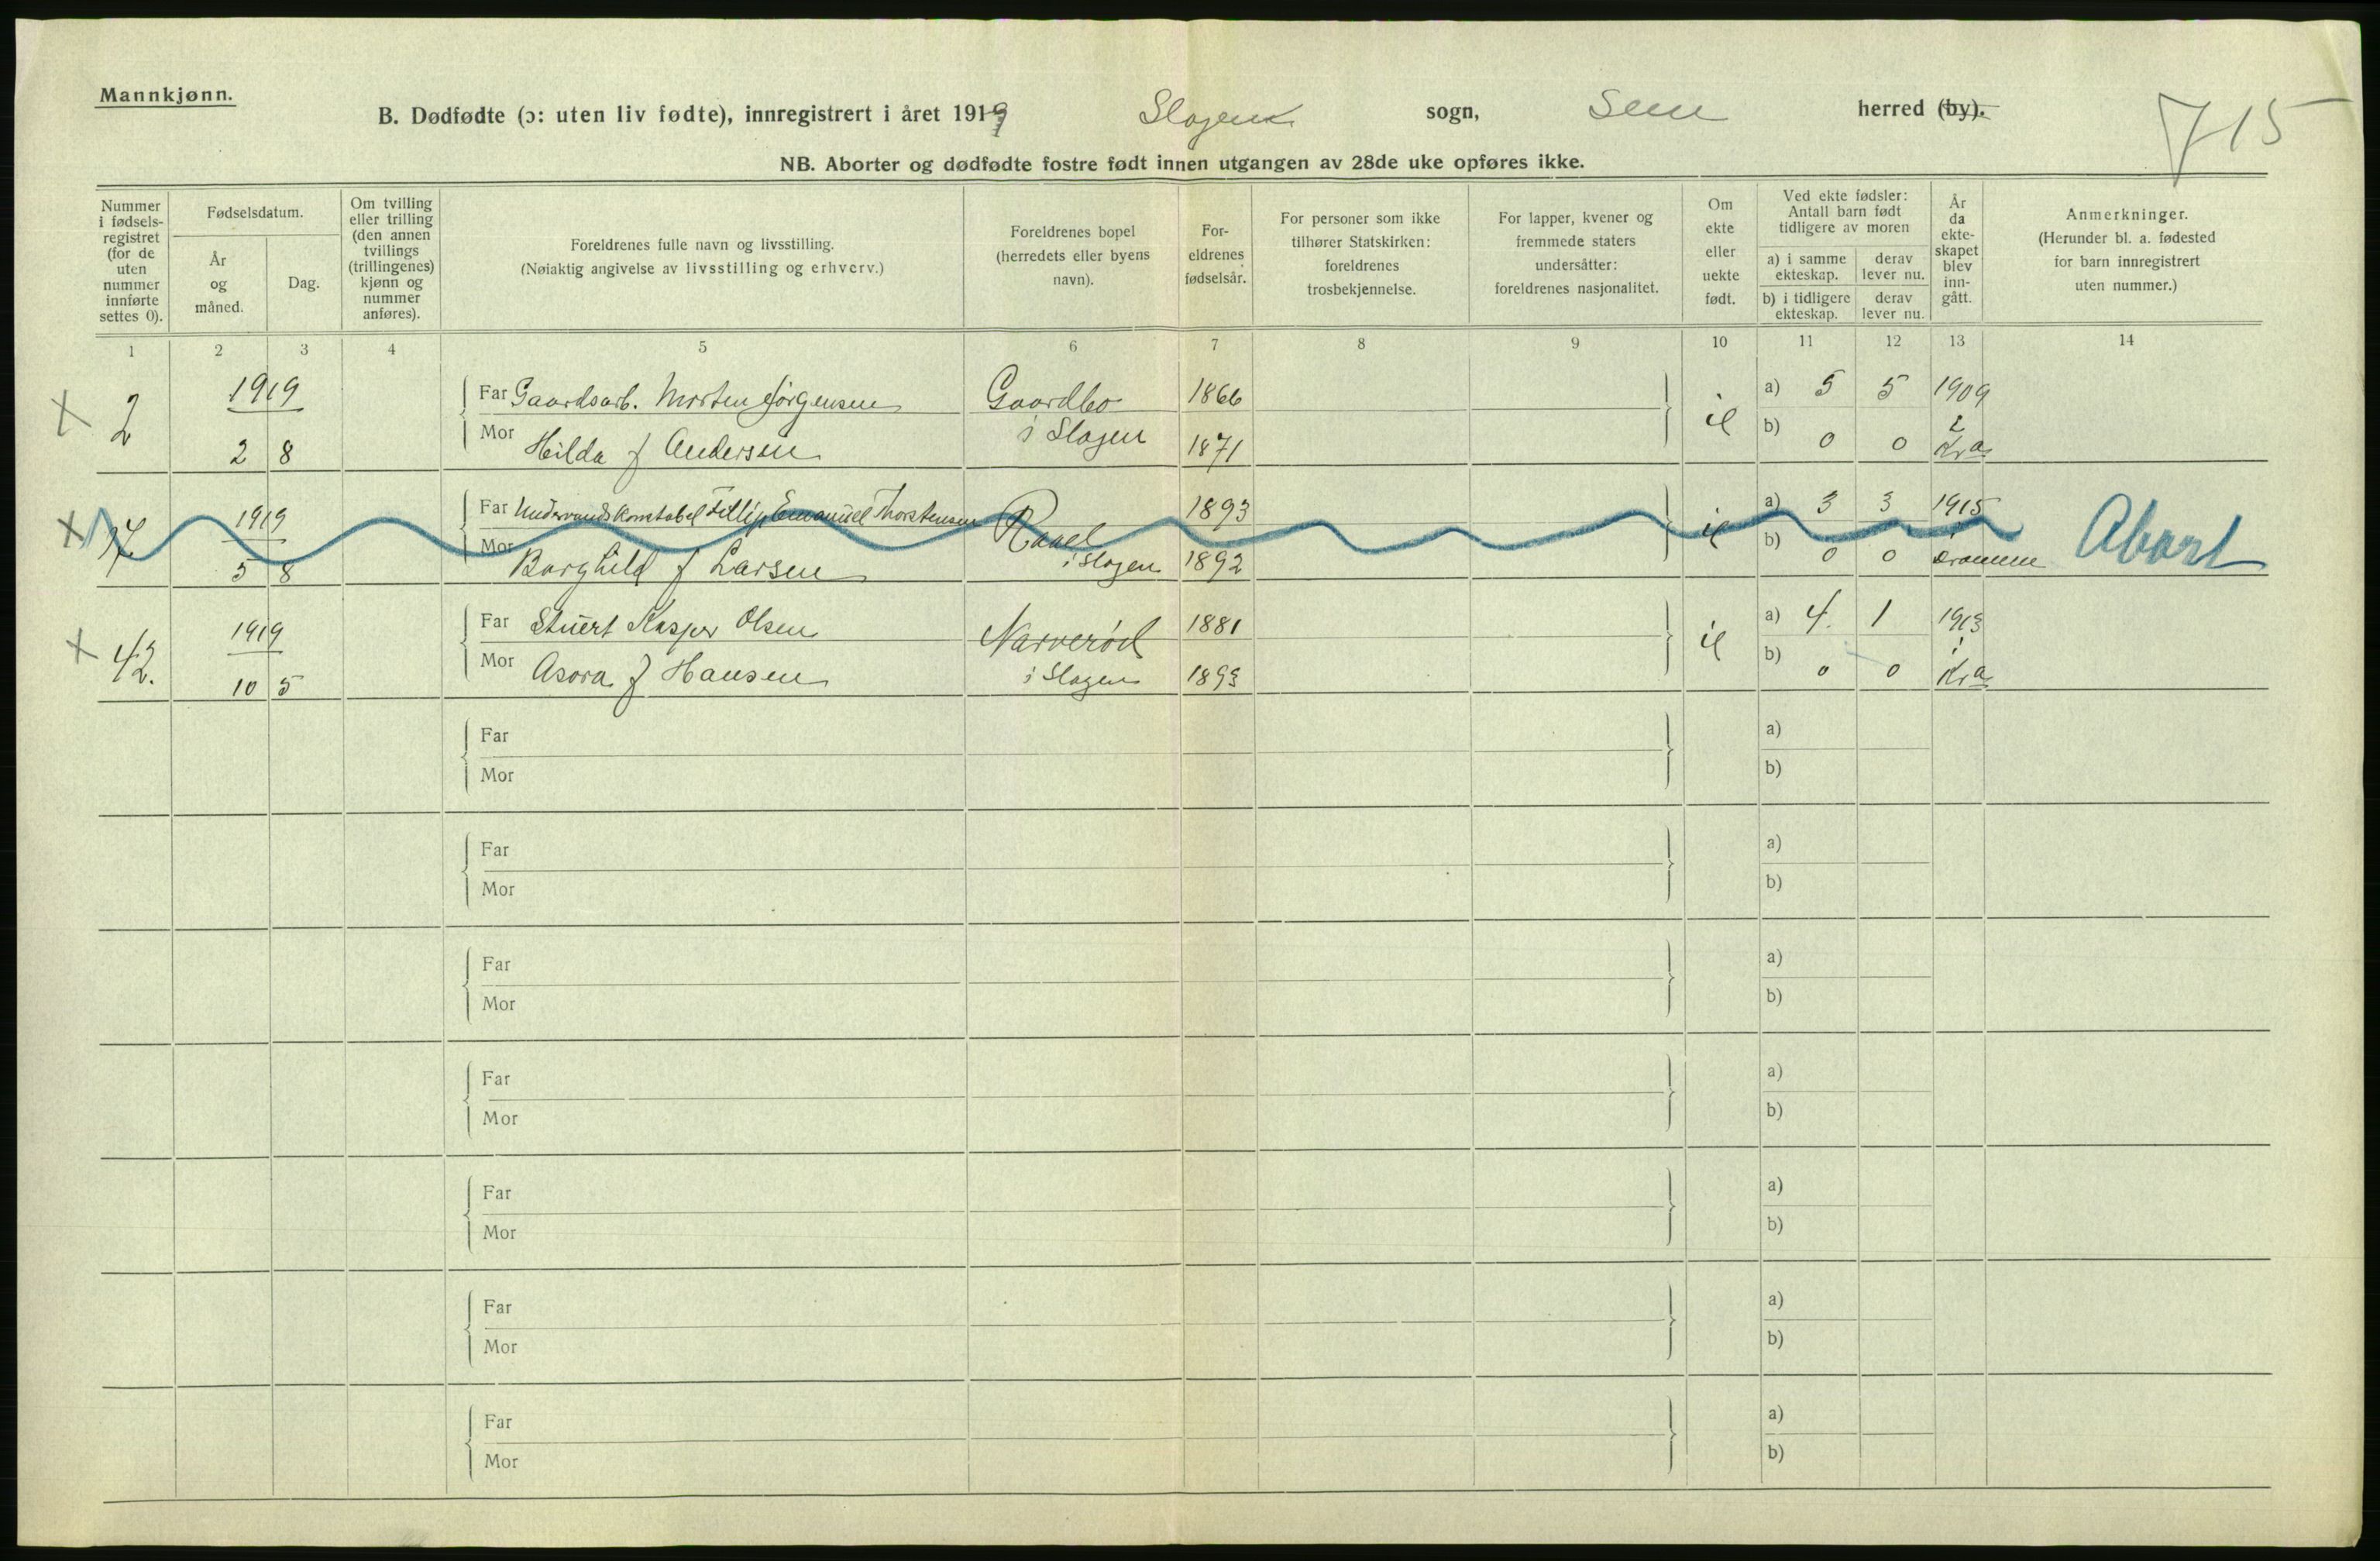 Mannkjønn.
B. Dødfødte (ɔ: uten liv fødte), innregistrert i året 1919 Slagens sogn, Sem herred (by).
715
NB. Aborter og dødfødte fostre født innen utgangen av 28de uke opføres ikke.
Nummer i fødsels-registret (for de uten nummer innførte settes 0).
Fødselsdatum.
År og måned.
Dag.
Om tvilling eller trilling (den annen tvillings (trillingenes) kjønn og nummer anføres).
Foreldrenes fulle navn og livsstilling.
(Nøiaktig angivelse av livsstilling og erhverv.)
Foreldrenes bopel (herredets eller byens navn).
For-eldrenes fødselsår.
For personer som ikke tilhører Statskirken: foreldrenes trosbekjennelse.
For lapper, kvener og fremmede staters undersåtter: foreldrenes nasjonalitet.
Om ekte eller uekte født.
Ved ekte fødsler: Antall barn født tidligere av moren
a) i samme ekteskap.
derav lever nu.
b) i tidligere ekteskap.
derav lever nu.
År da ekte-skapet blev inn-gått.
Anmerkninger.
(Herunder bl. a. fødested for barn innregistrert uten nummer.)
1 2 3 4 5 6 7 8 9 10 11 12 13 14
x 2 1919 Far Gaardsarb. Morten Jørgensen Gaardbo 1866 a) 5 5 1909
2 8 Mor Hilda f Andersen i Slagen 1871 b) 0 0 Kra
x 1919 Far Undervandskonstabel Fillip Emanuel Thorstensen 1893 a) 3 3 1915
5 8 Mor Borghild f Larsen i Slagen 1892 b) 0 0 Dramm
Abort
x 42. 1919 Far Stuert Kasper Olsen Narverød 1881 a) 4. 1 1913
10 5 Mor Asora f Hansen i Slagen 1893 b) 0 0 Kra
Far a)
Mor b)
Far a)
Mor b)
Far a)
Mor b)
Far a)
Mor b)
Far a)
Mor b)
Far a)
Mor b)
Far a)
Mor b)